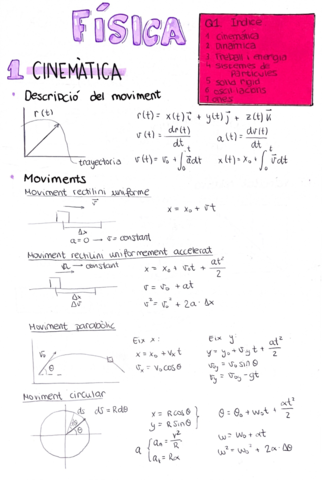 FÍSICA
Q1 Índice
1 Cinemàtica
2 Dinàmica
3 Treball i energia
4 Sistemes de partícules
5 Sòlid rígid
6 Oscil·lacions
7 Ones
1 CINEMÀTICA
• Descripció del moviment
r(t)
trayectoria
r(t) = x(t) i + y(t) j + z(t) k
v(t) = dr(t)/dt
a(t) = dv(t)/dt
v(t) = v₀ + ∫₀ᵗ a dt
x(t) = x₀ + ∫₀ᵗ v dt
• Moviments
Moviment rectilini uniforme
v
Δx
a = 0 → v = constant
x = x₀ + vt
Moviment rectilini uniformement accelerat
a → constant
Δx
Δv
x = x₀ + v₀t + at²/2
v = v₀ + at
v² = v₀² + 2a · Δx
Moviment parabòlic
v₀
θ
Eix x:
x = x₀ + vₓt
vₓ = v₀ cos θ
Eix y:
y = y₀ + v₀y t + at²/2
v₀y = v₀ sin θ
vy = v₀y - gt
Moviment circular
ds
dθ
ds = R dθ
x = R cos θ
y = R sin θ
a { aₙ = v²/R
aₜ = Rα
θ = θ₀ + ω₀t + αt²/2
ω = ω₀ + αt
ω² = ω₀² + 2α · Δθ